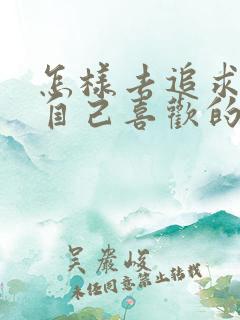 怎樣去追求
自己喜歡的
吴嚴峻
未任同意禁止转载